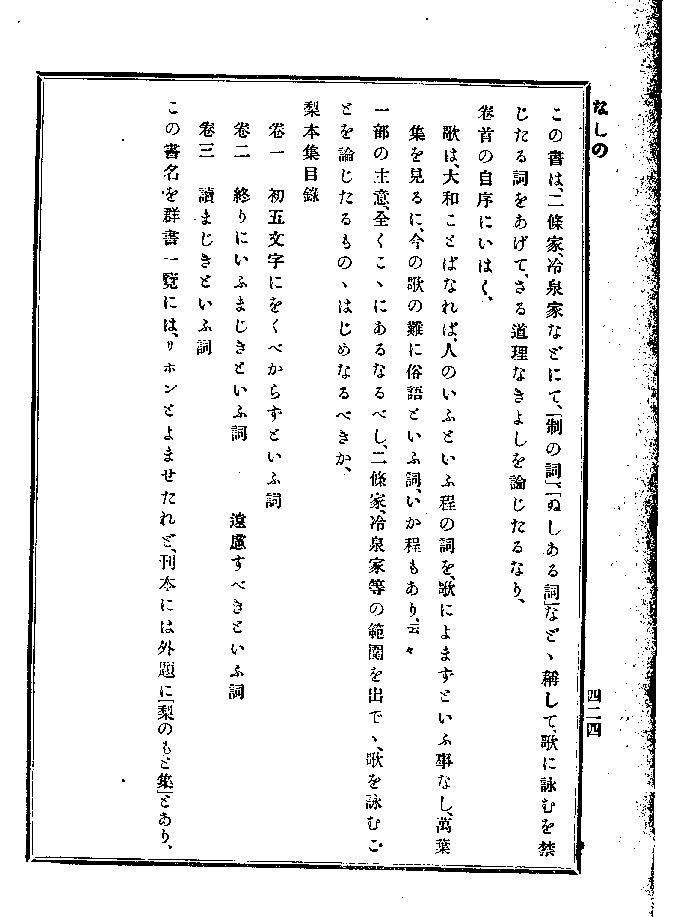 なしの
四二四
この書は、二條家、冷泉家などにて、「制の詞」、「ぬしある詞」などゝ稱して、歌に詠むを禁
じたる詞をあげて、さる道理なきよしを論じたるなり、
卷首の自序にいはく、
歌は、大和ことばなれば、人のいふといふ程の詞を、歌によまずといふ事なし、萬葉
集を見るに、今の歌の難に俗語といふ詞、いか程もあり、云々
一部の主意、全くこゝにあるなるべし、二條家、冷泉家等の範圍を出でゝ、歌を詠むこ
とを論じたるものゝはじめなるべきか、
梨本集目錄
卷一　初五文字にをくべからずといふ詞
卷二　終りにいふまじきといふ詞　遠慮すべきといふ詞
卷三　讀まじきといふ詞
この書名を群書一覽には、リホンとよませたれど、刊本には外題に「梨のもと集」とあり、